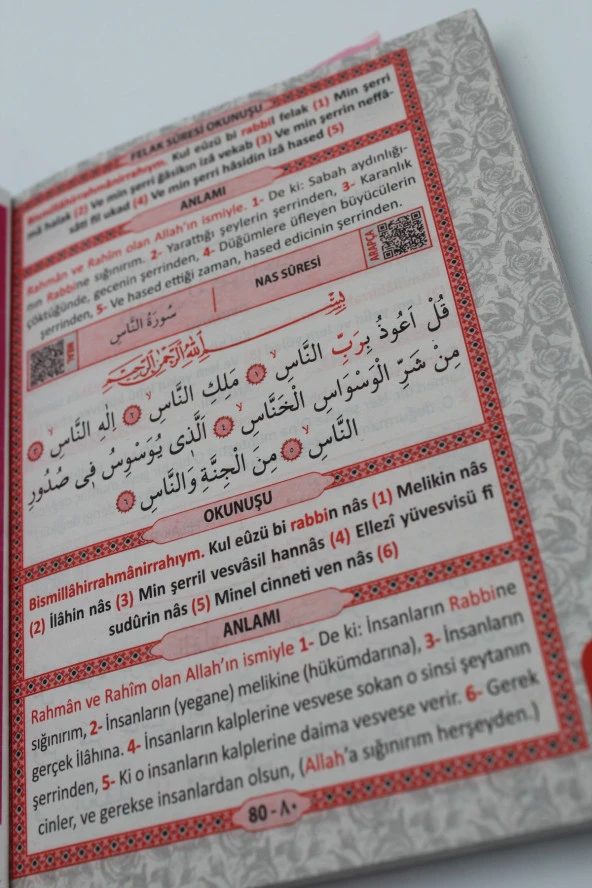 FELAK SÛRESİ OKUNUŞU
Bismillâhirrahmânirrahıym. Kul eûzü bi rabbil felak (1) Min şerri
mâ halak (2) Ve min şerri ğâsikın izâ vekab (3) Ve min şerrin neffâ-
sâti fil ukad (4) Ve min şerri hâsidin izâ hased (5)
ANLAMI
Rahmân ve Rahîm olan Allah'ın ismiyle. 1- De ki: Sabah aydınlığı-
nın Rabbine sığınırım. 2- Yarattığı şeylerin şerrinden, 3- Karanlık
çöktüğünde, gecenin şerrinden, 4- Düğümlere üfleyen büyücülerin
şerrinden, 5- Ve hased ettiği zaman, hased edicinin şerrinden.
سُورَةُ النَّاسِ
NAS SÛRESİ
ARAPÇA
بِسْمِ اللهِ الرَّحْمٰنِ الرَّحِيمِ
قُلْ اَعُوذُ بِرَبِّ النَّاسِ ﴿١﴾ مَلِكِ النَّاسِ ﴿٢﴾ اِلٰهِ النَّاسِ ﴿٣﴾
مِنْ شَرِّ الْوَسْوَاسِ الْخَنَّاسِ ﴿٤﴾ اَلَّذِى يُوَسْوِسُ فِى صُدُورِ
النَّاسِ ﴿٥﴾ مِنَ الْجِنَّةِ وَالنَّاسِ ﴿٦﴾
OKUNUŞU
Bismillâhirrahmânirrahıym. Kul eûzü bi rabbin nâs (1) Melikin nâs
(2) İlâhin nâs (3) Min şerril vesvâsil hannâs (4) Ellezî yüvesvisü fî
sudûrin nâs (5) Minel cinneti ven nâs (6)
ANLAMI
Rahmân ve Rahîm olan Allah'ın ismiyle 1- De ki: İnsanların Rabbine
sığınırım, 2- İnsanların (yegane) melikine (hükümdarına), 3- İnsanların
gerçek İlâhına. 4- İnsanların kalplerine vesvese sokan o sinsi şeytanın
şerrinden, 5- Ki o insanların kalplerine daima vesvese verir. 6- Gerek
cinler, ve gerekse insanlardan olsun, (Allah'a sığınırım herşeyden.)
80 - ٨٠